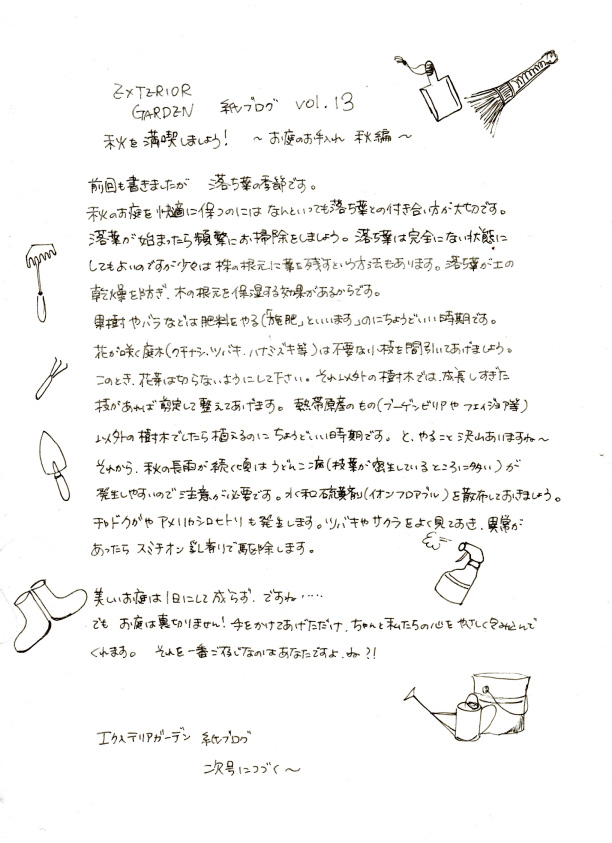 EXTERIOR
GARDEN 紙ブログ vol.13
秋を満喫しましょう! ～お庭のお手入れ 秋編～
前回も書きましたが 落ち葉の季節です。
秋のお庭を快適に保つのには なんといっても落ち葉との付き合い方が大切です。
落葉が始まったら頻繁にお掃除をしましょう。落ち葉は完全にない状態に
してもよいのですが少々は株の根元に葉を残すという方法もあります。落ち葉が土の
乾燥を防ぎ、木の根元を保湿する効果があるからです。
果樹やバラなどは肥料をやる(「施肥」といいます)のにちょうどいい時期です。
花が咲く庭木(クチナシ、ツバキ、ハナミズキ等)は不要な小枝を間引いてあげましょう。
このとき、花芽は切らないようにして下さい。それ以外の樹木では、成長しすぎた
枝があれば剪定して整えてあげます。熱帯原産のもの(ブーゲンビリアやフェイジョア等)
以外の樹木でしたら植えるのにちょうどいい時期です。と、やること沢山ありますね～
それから、秋の長雨が続く頃はうどんこ病(枝葉が密生しているところに多い)が
発生しやすいのでご注意が必要です。水和硫黄剤(イオンフロアブル)を散布しておきましょう。
チャドクガやアメリカシロヒトリも発生します。ツバキやサクラをよく見ておき、異常が
あったら スミチオン乳剤で駆除します。
美しいお庭は1日にして成らず、ですね……
でも お庭は裏切りません!手をかけてあげただけ、ちゃんと私たちの心をやさしく包み込んで
くれます。 それを一番ご存じなのはあなたですよ、ね?!
エクステリアガーデン 紙ブログ
次号につづく～